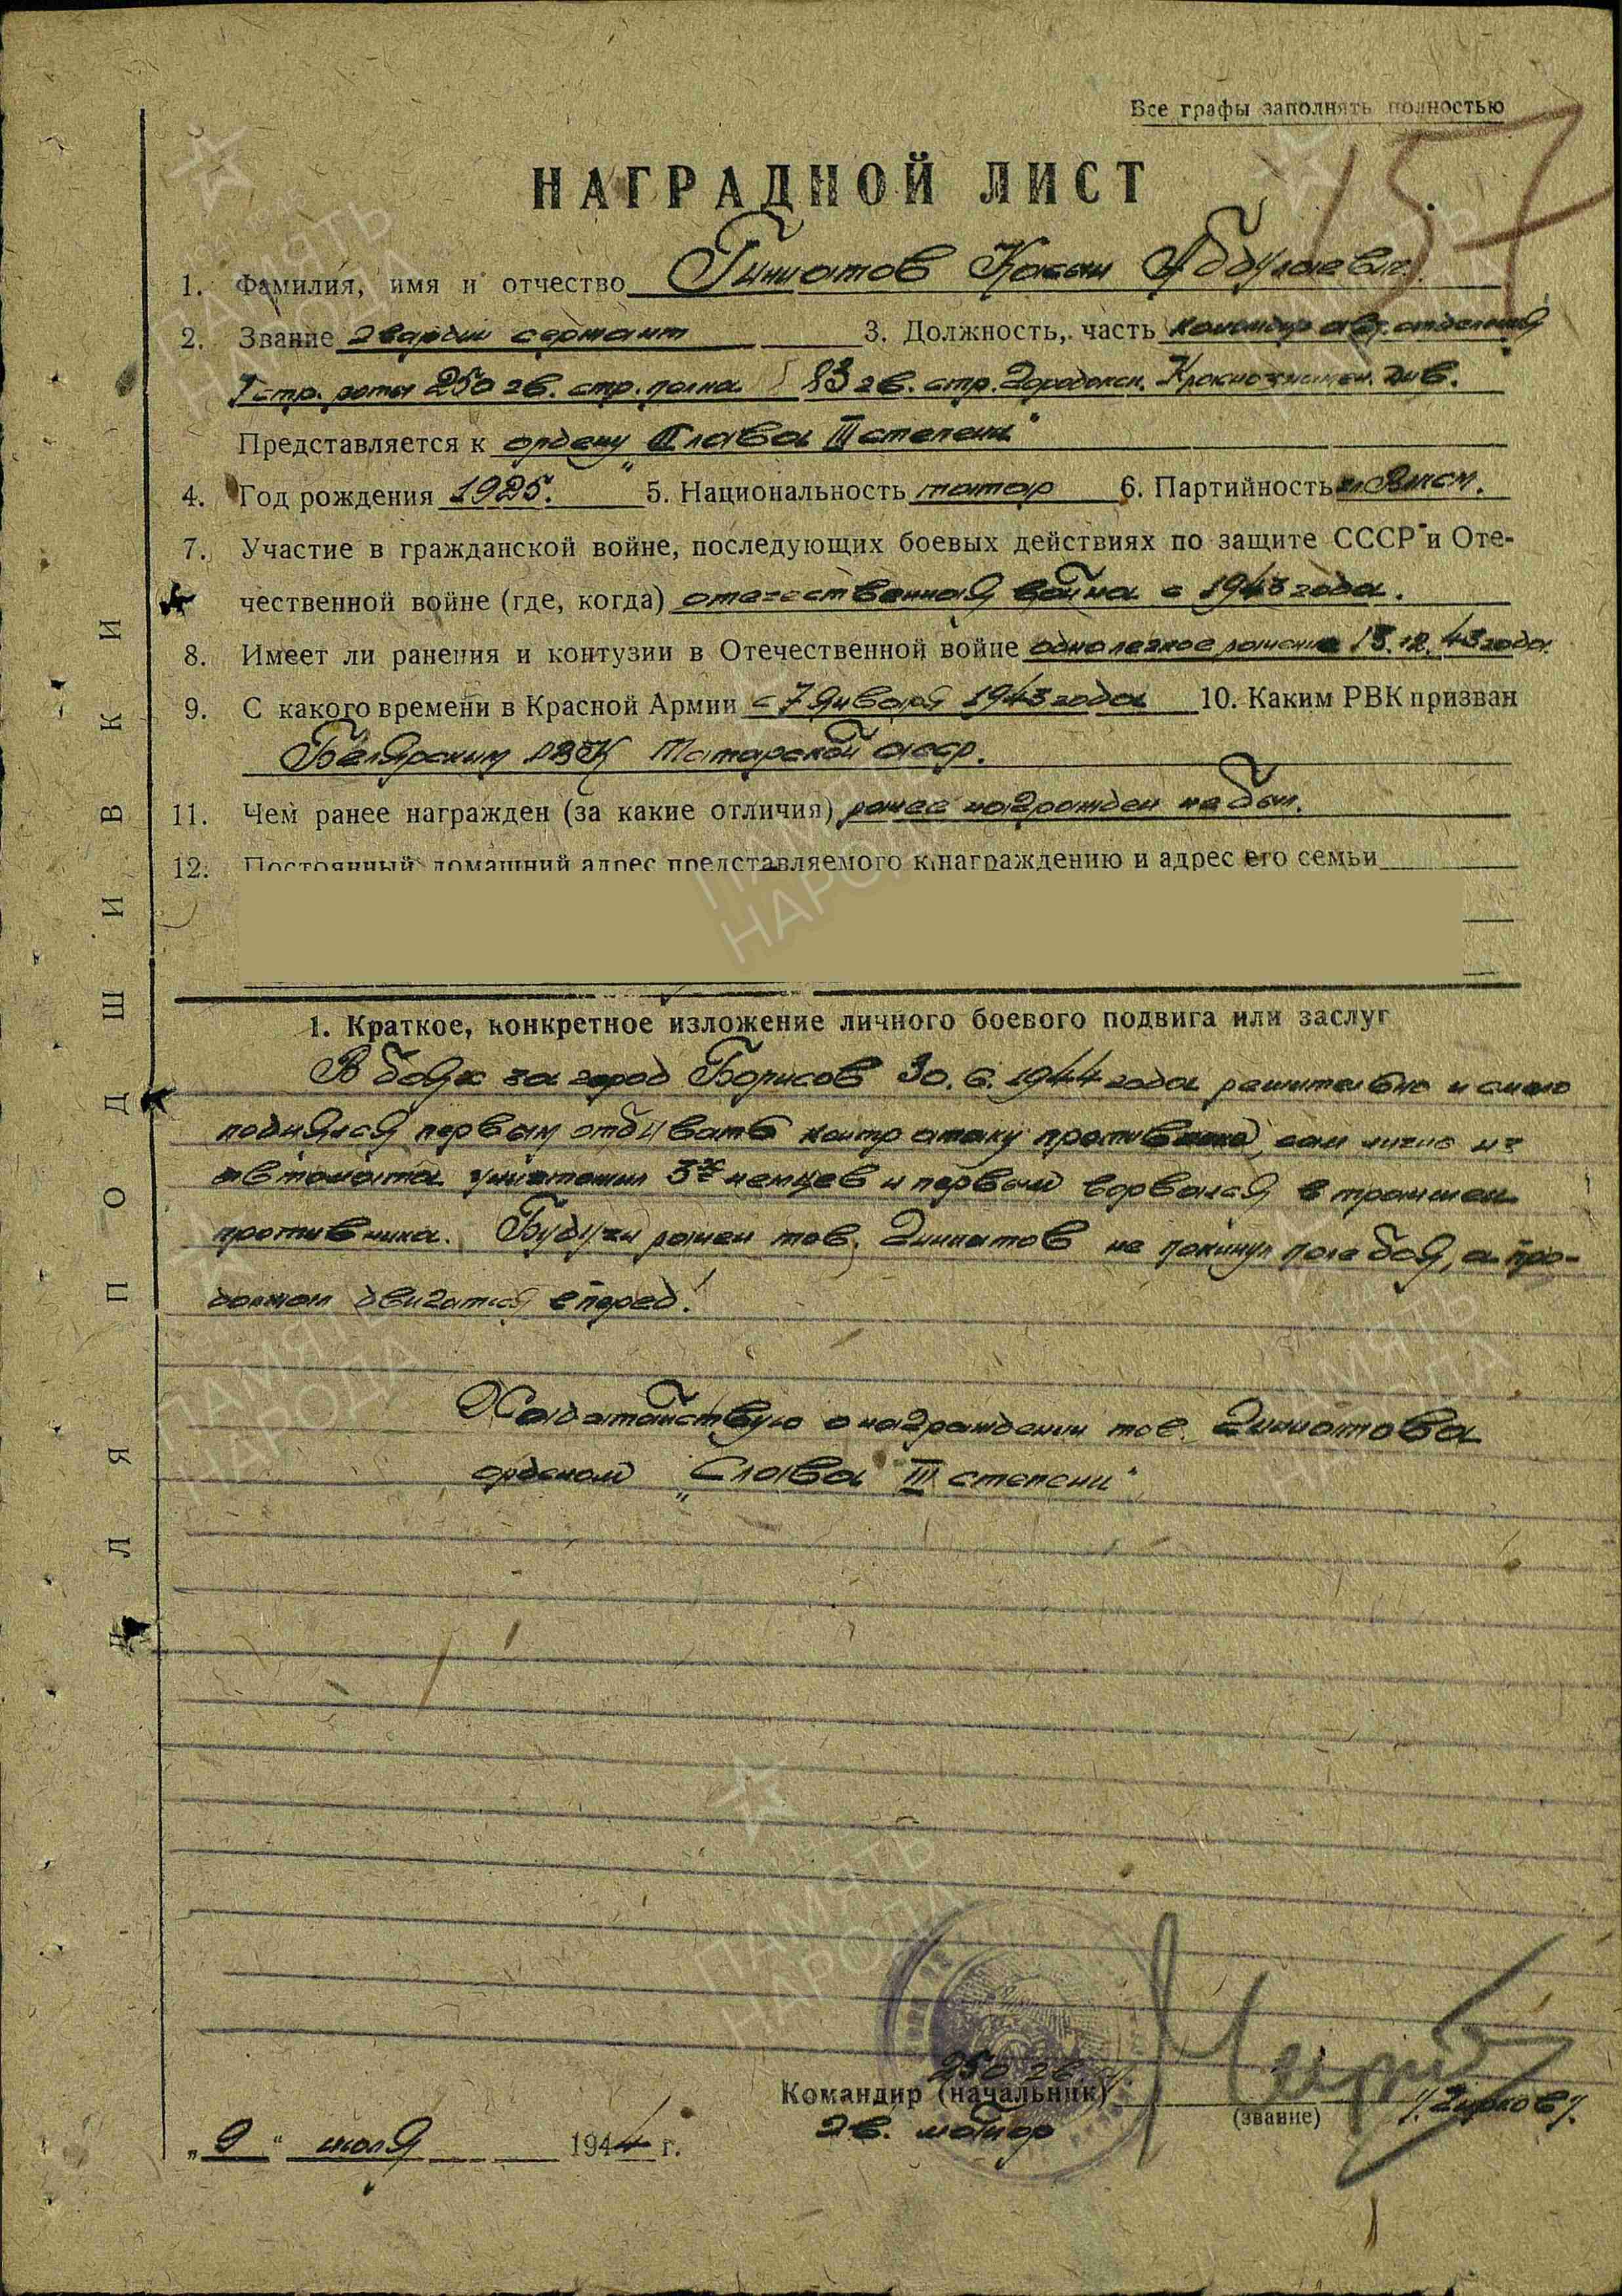 Все графы заполнять полностью
157
НАГРАДНОЙ ЛИСТ
1. Фамилия, имя и отчество Гиниатов Касым Абдулаевич.
2. Звание гвардии сержант 3. Должность, часть командир авт. отделения
7 стр. роты 250 гв. стр. полка 83 гв. стр. Городокск. Краснознамен. див.
Представляется к ордену „Слава III степени"
4. Год рождения 1925. 5. Национальность татар 6. Партийность чл. влксм.
7. Участие в гражданской войне, последующих боевых действиях по защите СССР и Оте-
чественной войне (где, когда) отечественная война с 1943 года.
8. Имеет ли ранения и контузии в Отечественной войне одно легкое ранение 13.12.43 года
9. С какого времени в Красной Армии с 7 января 1943 года 10. Каким РВК призван
Билярским РВК Татарской асср.
11. Чем ранее награжден (за какие отличия) ранее награжден не был.
12. Постоянный домашний адрес представляемого к награждению и адрес его семьи
1. Краткое, конкретное изложение личного боевого подвига или заслуг
В боях за город Борисов 30.6.1944 года решительно и смело
поднялся первым отбивать контр атаку противника, сам лично из
автомата уничтожил 3х немцев и первым ворвался в траншеи
противника. Будучи ранен тов. Гиниатов не покинул поле боя, а про-
должал двигатся вперед!
Ходатайствую о награждении тов. Гиниатова
орденом „Слава III степени"
250 гв сп.
Командир (начальник)
гв. майор
(звание)
„9" июля 1944 г.
ДЛЯ ПОДШИВКИ
ПАМЯТЬ НАРОДА